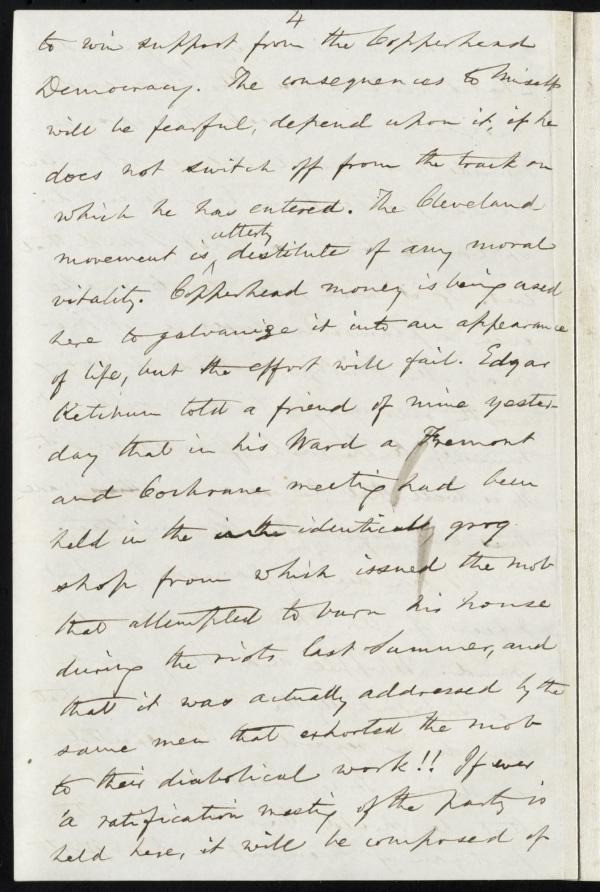 4
to win support from the Copperhead
Democracy. The consequences to himself
will be fearful, depend upon it, if he
does not switch off from the track on
which he has entered. The Cleveland
utterly
movement is destitute of any moral
vitality. Copperhead money is being used
here to galvanize it into an appearance
of life, but the effort will fail. Edgar
Ketchum told a friend of mine yester-
day that in his Ward a Fremont
and Cochrane meeting had been
held in the in the identically grog
shop from which issued the mob
that attempted to burn his house
during the riots last Summer, and
that it was actually addressed by the
same men that exhorted the mob
to their diabolical work!! If ever
a ratification meeting of the party is
held here, it will be composed of